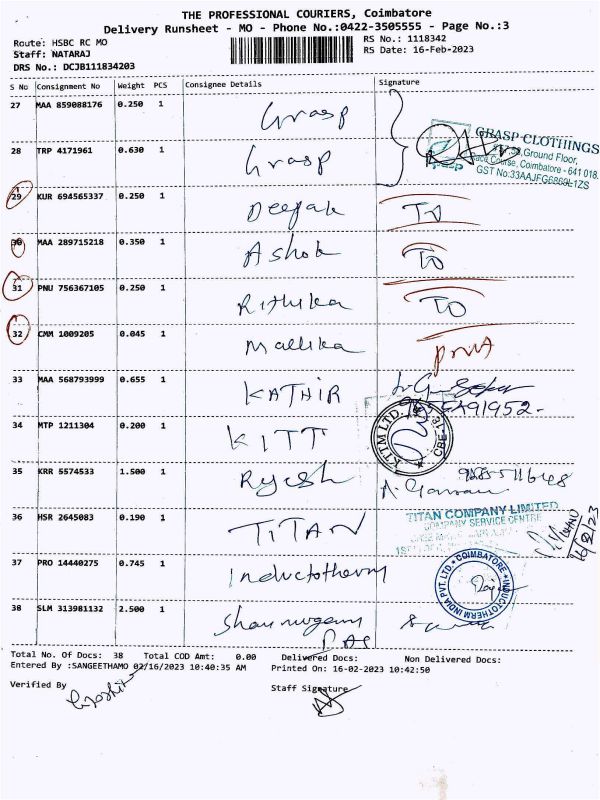 THE PROFESSIONAL COURIERS, Coimbatore
Delivery Runsheet - MO - Phone No.:0422-3505555 - Page No.:3
Route: HSBC RC MO
Staff: NATARAJ
DRS No.: DCJB111834203
RS No.: 1118342
RS Date: 16-Feb-2023
S No Consignment No Weight PCS Consignee Details Signature
27 MAA 859088176 0.250 1 Grasp
GRASP CLOTHINGS
Ground Floor,
Race Course, Coimbatore - 641 018.
28 TRP 4171961 0.630 1 Grasp
29 KUR 694565337 0.250 1 Deepak TO
30 MAA 289715218 0.350 1 Ashok TO
31 PNU 756367105 0.250 1 Rithika TO
32 CMM 1009205 0.045 1 Mallika
33 MAA 568793999 0.655 1 KATHIR
34 MTP 1211304 0.200 1 KITT
KTTM LTD.
35 KRR 5574533 1.500 1
36 HSR 2645083 0.190 1 TITAN
TITAN COMPANY LIMITED
COMPANY SERVICE CENTRE
16/2/23
37 PRO 14440275 0.745 1 Inductotherm
INDUCTOTHERM INDIA PVT. LTD. COIMBATORE
38 SLM 313981132 2.500 1 Shanmugam
Total No. Of Docs: 38 Total COD Amt: 0.00 Delivered Docs: Non Delivered Docs:
Entered By :SANGEETHAMO 02/16/2023 10:40:35 AM Printed On: 16-02-2023 10:42:50
Verified By
Staff Signature